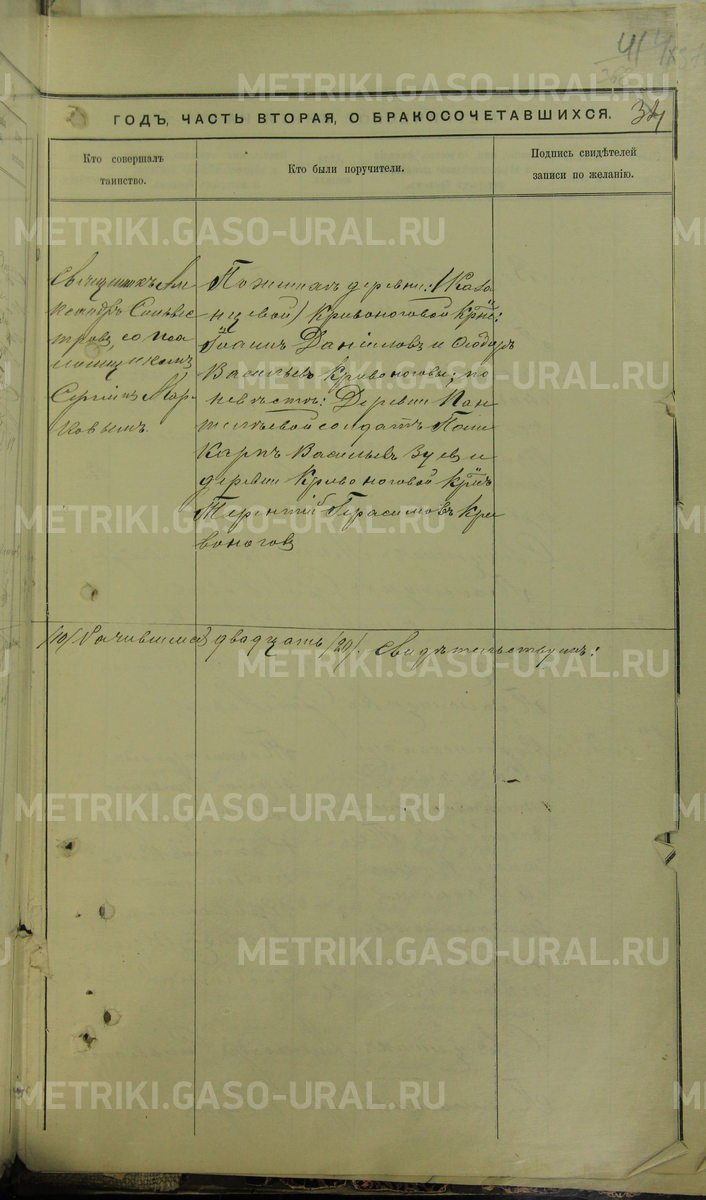 41
ГОДЪ, ЧАСТЬ ВТОРАЯ, О БРАКОСОЧЕТАВШИХСЯ. 34
Кто совершалъ
таинство.
Кто были поручители.
Подпись свидѣтелей
записи по желанію.
Священникъ Але
ксандръ Сильвес
тровъ со пса
ломщикомъ
Сергіемъ Мар-
ковымъ.
По женихѣ: деревни
Кривоноговой крне:
Іоаннъ Даніиловъ и Ѳеодоръ
Васильевъ Кривоноговы; по
невѣстѣ: Деревни Пан
телѣевой солдатъ Поли
карпъ Васильевъ Зуевъ и
деревни Кривоноговой крнъ
Терентій Герасимовъ Кри
воноговъ
двадцать /20/. Свидѣтельствуемъ:
METRIKI.GASO-URAL.RU
METRIKI.GASO-URAL.RU
METRIKI.GASO-URAL.RU
METRIKI.GASO-URAL.RU
METRIKI.GASO-URAL.RU
METRIKI.GASO-URAL.RU
METRIKI.GASO-URAL.RU
METRIKI.GASO-URAL.RU